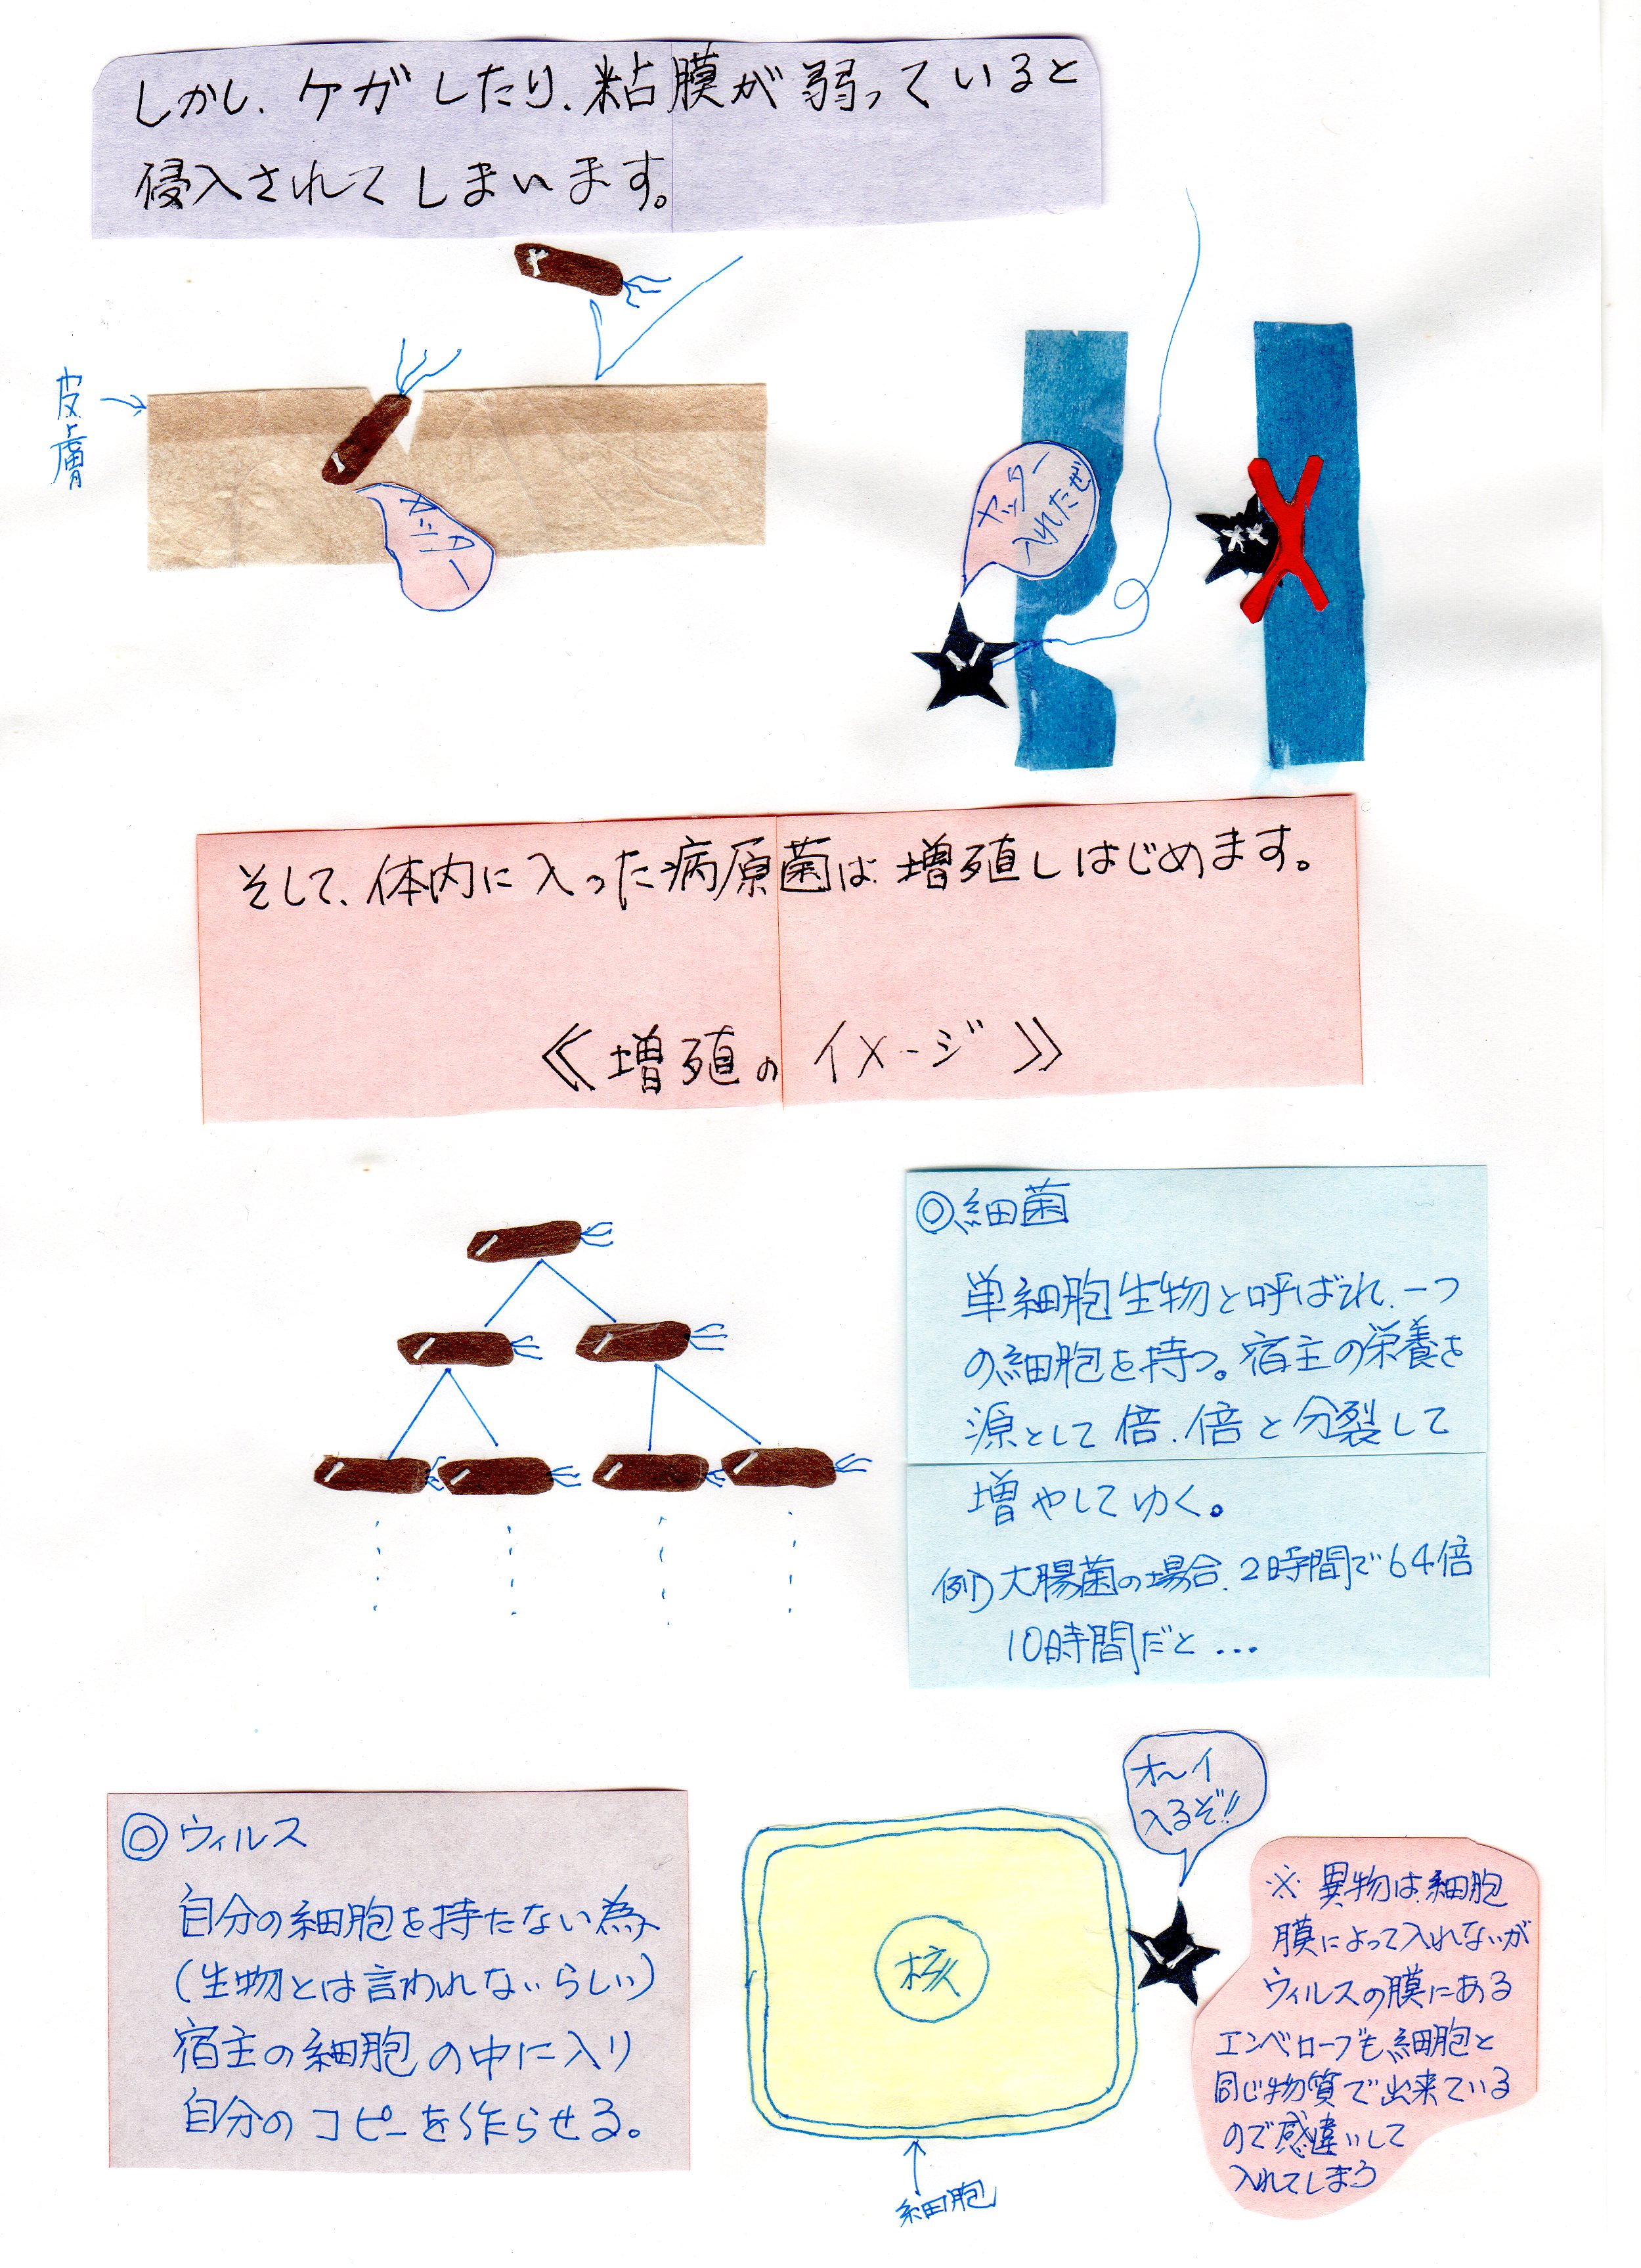 しかし、ケガしたり、粘膜が弱っていると
侵入されてしまいます。
皮膚
ヤッター
ヤッター
入れたぜ
そして、体内に入った病原菌は、増殖しはじめます。
《増殖のイメージ》
◎細菌
単細胞生物と呼ばれ、一つ
の細胞を持つ。宿主の栄養を
源として倍、倍と分裂して
増やしてゆく。
例)大腸菌の場合、2時間で64倍
10時間だと…
◎ウィルス
自分の細胞を持たない為
(生物とは言われないらしい)
宿主の細胞の中に入り
自分のコピーを作らせる。
核
細胞
オ〜イ
入るぞ!!
※異物は、細胞
膜によって入れないが
ウィルスの膜にある
エンベロープも、細胞と
同じ物質で出来ている
ので感違いして
入れてしまう